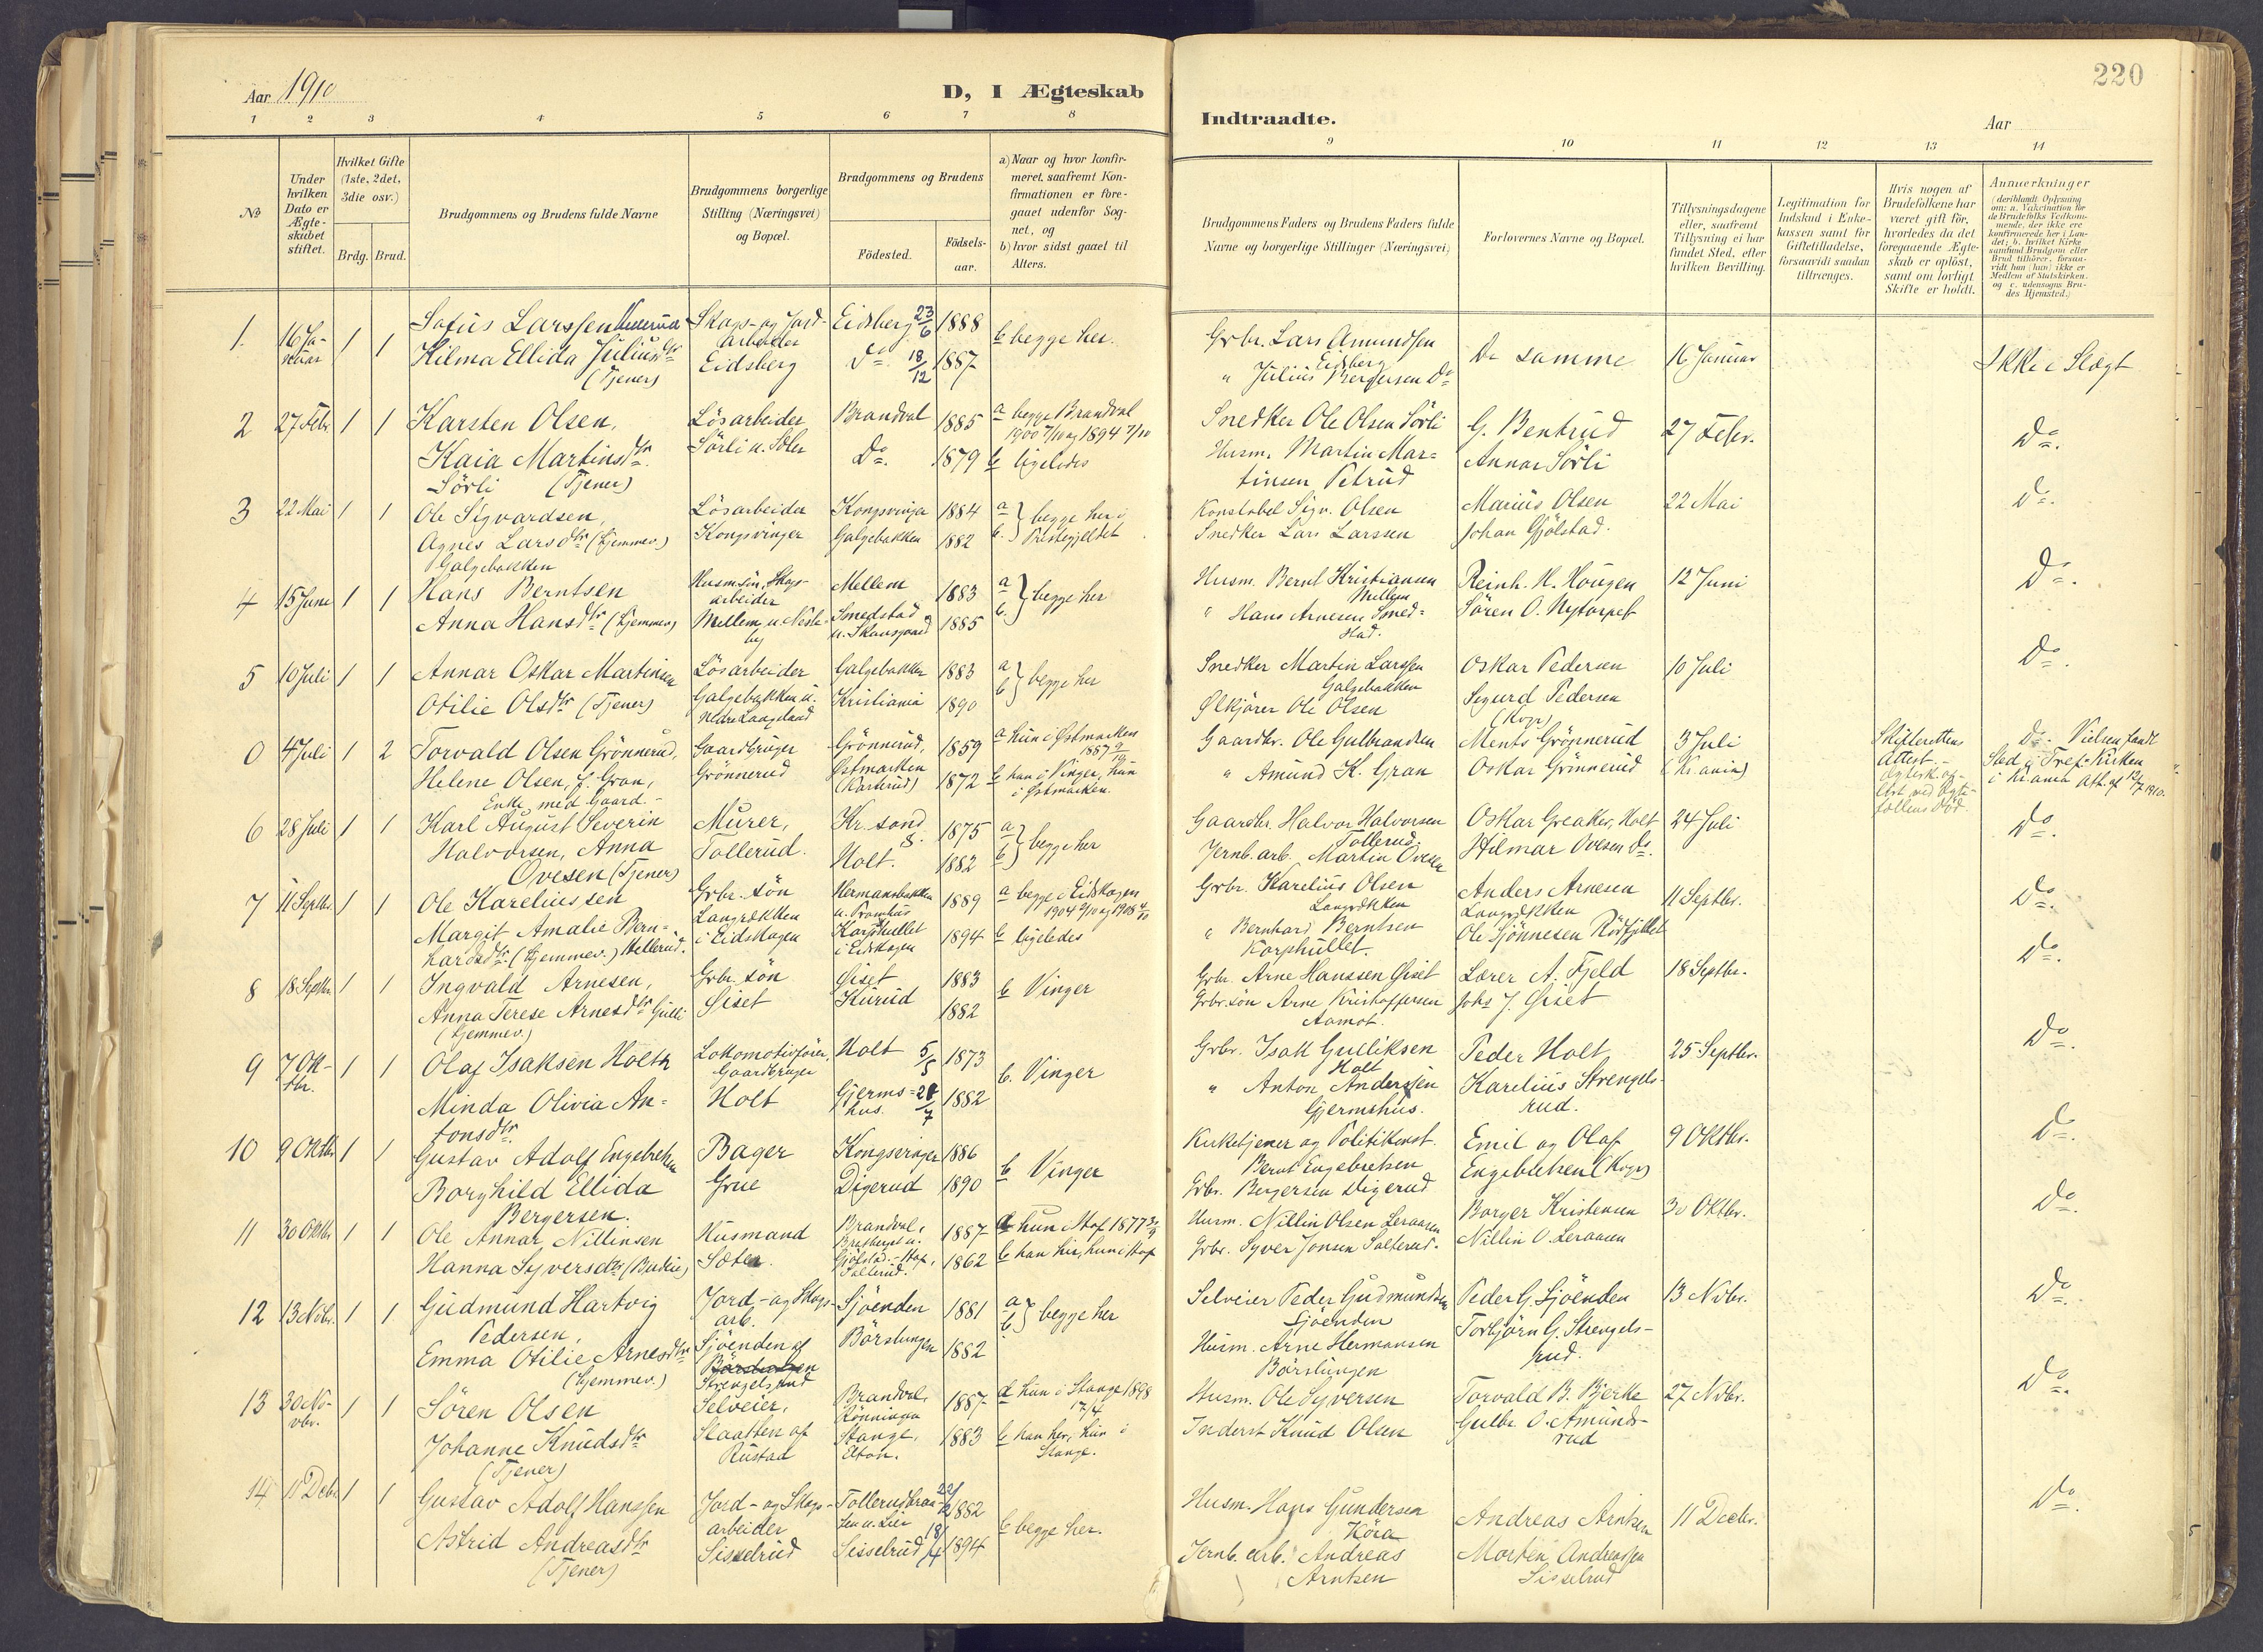 220
Aar 1910
D, I Ægteskab
Indtraadte.
Aar
1 2 3 4 5 6 7 8 9 10 11 12 13 14
No
Under hvilken Dato er Ægteskabet stiftet.
Hvilket Gifte (1ste, 2det, 3die osv.)
Brdg. Brud.
Brudgommens og Brudens fulde Navne
Brudgommens borgerlige Stilling (Næringsvei) og Bopæl.
Brudgommens og Brudens
Födested.
Födsels-aar.
a) Naar og hvor konfirmeret, saafremt Konfirmationen er foregaaet udenfor Sognet, og
b) hvor sidst gaaet til Alters.
Brudgommens Faders og Brudens Faders fulde Navne og borgerlige Stillinger (Næringsvei)
Forlovernes Navne og Bopæl.
Tillysningsdagene eller, saafremt Tillysning ei har fundet Sted, efter hvilken Bevilling.
Legitimation for Indskud i Enkekassen samt for Giftetilladelse, forsaavidt saadan tiltrænges.
Hvis nogen af Brudefolkene har været gift för, hvorledes da det foregaaende Ægteskab er oplöst, samt om lovligt Skifte er holdt.
Anmerkninger (deriblandt Oplysning om: a. Vakcination for de Brudefolks Vedkommende, der ikke ere konfirmerede her i Landet; b. hvilket Kirkesamfund Brudgom eller Brud tilhörer, forsaavidt han (hun) ikke er Medlem af Statskirken, og c. udensogns Brudes Hjemsted.)
1. 16 Januar 1 1 Sofus Larssen
Hilma Ellida Juliusdtr (Tjener)
Skogs- og Jordarbeider Eidsberg
Eidsberg 23/6 1888
Do. 18/12 1887
b begge her.
Grbr. Lars Amundsen Eidsberg
" Julius Bergersen Do
De samme
16 Januar
Ikke i Slægt
2 27 Febr. 1 1 Karsten Olsen,
Kaia Martinsdtr. Sörli (Tjener)
Lösarbeider Sörli u. Soler
Brandval 1885
Do. 1879
a begge Brandval 1900 7/10 og 1894 7/10
b ligeledes
Snedker Ole Olsen Sörli
Husm. Martin Martinsen Petrud
G. Bentrud
Annar Sörli
27 Febr.
Do.
3 22 Mai 1 1 Ole Sigvardsen,
Agnes Larsdtr (hjemmev.) Galgebakken
Lösarbeider Kongsvinger
Kongsvinger 1884
Galgebakken 1882
a b. begge her i Præstegjeldet
Konstabel Sigv. Olsen
Snedker Lars Larssen
Marius Olsen
Johan Gjölstad.
22 Mai
Do.
4 15 Juni 1 1 Hans Berntsen
Anna Hansdtr (hjemmev.)
Husm.sön, Skogsarbeider
Mellem u. Nesteby
Mellem 1883
Smedstad u. Skansgaard 1885
a b. begge her
Husm. Bernt Kristiansen Mellem
" Hans Arnesen Smedstad.
Reinh. H. Hougen
Sören O. Nytorpet
12 Juni
Do.
5 10 Juli 1 1 Annar Oskar Martinsen
Otilie Olsdtr (Tjener)
Lösarbeider Galgebakken u. nedre Langeland
Galgebakken 1883
Kristiania 1890
a b begge her
Snedker Martin Larssen Galgebakken
Ølkjörer Ole Olsen
Oskar Pedersen
Sigurd Pedersen (Kvgr)
10 Juli
Do.
0 4 Juli 1 2 Torvald Olsen Grönnerud,
Helene Olsen, f. Gran, Enke med Gaard.
Gaardbruger Grönnerud
Grönnerud, 1859
Østmarken 1872
a hun i Østmarken 1887 9/10
b han i Vinger, hun i Østmarken.
Gaardbr. Ole Gulbrandsen
" Amund K. Gran
Ments Grönnerud
Oskar Grönnerud
3 Juli (Kr.ania)
Skifterettens Attest.
Do. Vielsen fandt Sted i Tref. Kirken i Kr.ania Att. af 13/7 1910.
6 28 Juli 1 1 Karl August Severin Halvorsen,
Anna Ovesen (Tjener)
Murer, Tollerud.
Kr.sand S. 1875
Holt. 1882
a b begge her
Gaardbr. Halvor Halvorsen Tollerud
Jernb. arb. Martin Ovesen
Oskar Greaker, Holt
Hilmar Ovesen Do.
24 Juli
Do.
7 11 Septbr. 1 1 Ole Kareliussen
Margit Amalie Bernhardsdtr. (hjemmev.) Hellerud.
Grbr. sön Langrekken i Eidskogen
Hermansbakken 1889
Korphullet i Eidskogen 1894
a begge i Eidskogen 1904 9/10 og 1908 4/10
b ligeledes
Grbr. Karelius Olsen Langrekken
" Bernhard Berntsen Korphullet.
Anders Arnesen Langrekken
Ole Sjönnesen Rödfjellet
11 Septbr.
Do.
8 18 Septbr 1 1 Ingvald Arnesen,
Anna Terese Arnesdtr Gulli (hjemmev.)
Grbr. sön Siset
Siset 1883
Kurud 1882
b Vinger
Grbr. Arne Hanssen Siset
Grbr.sön Arne Kristoffersen Aamot.
Lærer A. Fjeld
Johs J. Siset
18 Septbr.
Do.
9 7 Oktbr. 1 1 Olaf Isaksen Holth
Minda Olivia Antonsdtr.
Lokomotivförer, Gaardbruger Holt
Holt 5/5 1873
Gjermshus. 1882
b. Vinger
Grbr. Isak Gulliksen Holt
" Anton Anderssen Gjermshus.
Peder Holt
Karelius Strengelsrud.
25 Septbr.
Do.
10 9 Oktbr. 1 1 Gustav Adolf Engebretsen
Borghild Ellida Bergersen.
Bager Grue
Kongsvinger 1886
Digerud 1890
b Vinger
Kirketjener og Politikonst. Bernt Engebretsen
Grbr. Bergersen Digerud
Emil og Olaf Engebretsen (Kvgr)
9 Oktbr.
Do.
11 30 Oktbr 1 1 Ole Annar Nillinsen
Hanna Syversdtr (Budeie)
Husmand Soler.
Brandval, 1887
Gjölstad - Hof, Salterud. 1862
b han her, hun i Hof
Husm. Nillin Olsen Leraasen
Grbr. Syver Jonsen Salterud.
Borger Kristensen
Nillin O. Leraasen
30 Oktbr.
Do.
12 13 Novbr. 1 1 Gudmund Hartvig Pedersen,
Emma Otilie Arnesdtr (hjemmev.)
Jord- og Skogsarb. Sjöenden af Strengelsrud
Sjöenden 1881
Börslungen 1882
a b begge her
Selveier Peder Gudmundsen Sjöenden
Husm. Arne Hermansen Börslungen
Peder G. Sjöenden
Torbjörn G. Strengelsrud.
13 Novbr.
Do.
13 30 Novbr. 1 1 Sören Olsen
Johanne Knudsdtr (Tjener)
Selveier, Slaatten af Rustad
Brandval, Rönningen 1887
Stange, 1883
a hun i Stange 1898 17/4
b han her, hun i Stange.
Husm. Ole Syversen
Inderst Knud Olsen
Torvald B. Bjerke
Gulbr. O. Amundsrud
27 Novbr.
Do.
14 11 Decbr 1 1 Gustav Adolf Hanssen
Astrid Andreasdtr (Tjener)
Jord- og Skogsarbeider Sisselrud
Tollerudbraaten u. Lier 1882
Sisselrud 18/4 1894
b begge her.
Husm. Hans Gundersen Köra
Jernb. arb. Andreas Arntsen
Andreas Arntsen
Morten Andreassen Sisselrud
11 Decbr.
Do.